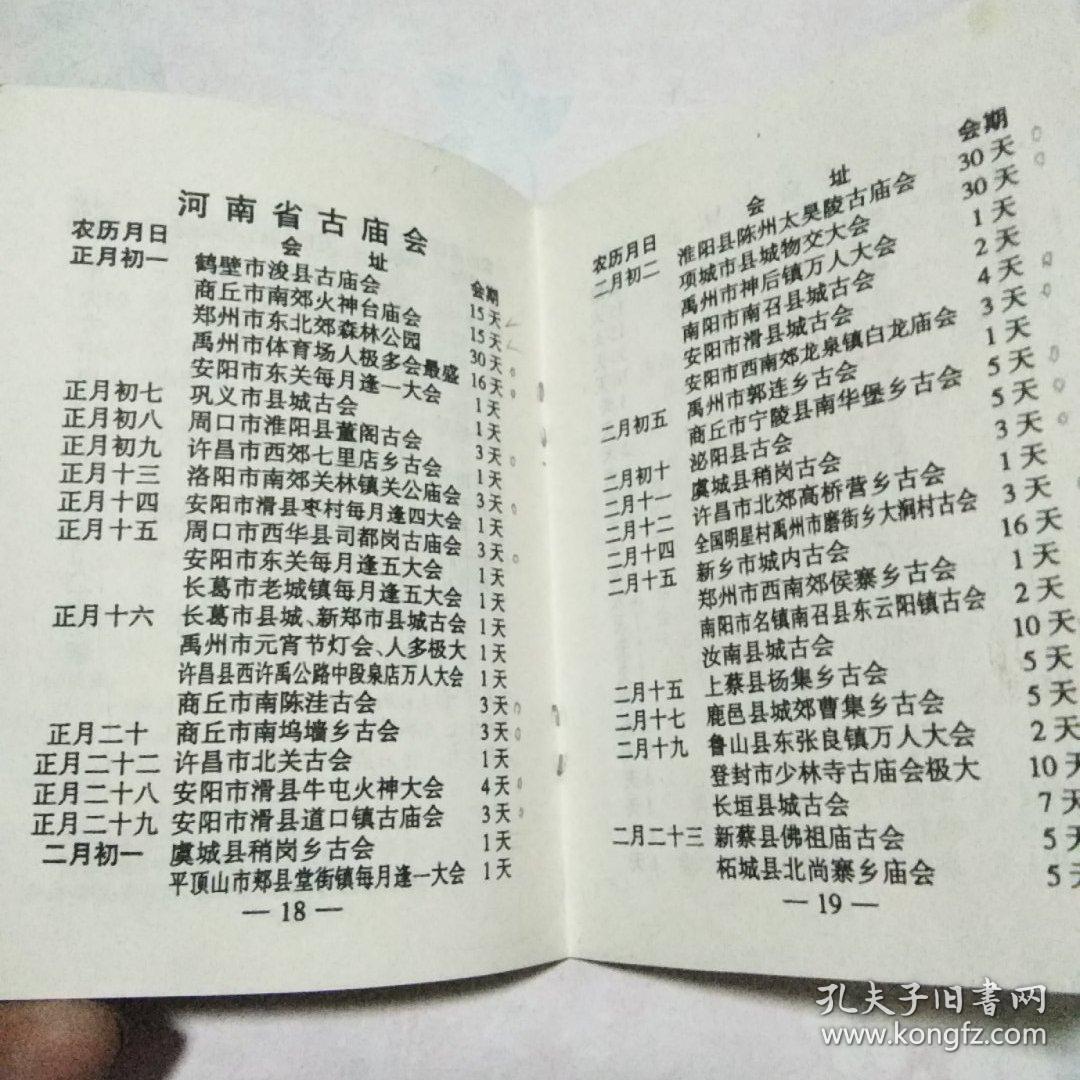 河南省古庙会
农历月日 会 址 会期
正月初一 鹤壁市浚县古庙会 15天
商丘市南郊火神台庙会 15天
郑州市东北郊森林公园 30天
禹州市体育场人极多会最盛 16天
安阳市东关每月逢一大会 1天
正月初七 巩义市县城古会 1天
正月初八 周口市淮阳县董阁古会 3天
正月初九 许昌市西郊七里店乡古会 1天
正月十三 洛阳市南郊关林镇关公庙会 3天
正月十四 安阳市滑县枣村每月逢四大会 1天
正月十五 周口市西华县司都岗古庙会 3天
安阳市东关每月逢五大会 1天
长葛市老城镇每月逢五大会 1天
正月十六 长葛市县城、新郑市县城古会 1天
禹州市元宵节灯会、人多极大 1天
许昌县西许禹公路中段泉店万人大会 1天
商丘市南陈洼古会 3天
正月二十 商丘市南坞墙乡古会 3天
正月二十二 许昌市北关古会 1天
正月二十八 安阳市滑县牛屯火神大会 4天
正月二十九 安阳市滑县道口镇古庙会 3天
二月初一 虞城县稍岗乡古会 1天
平顶山市郏县堂街镇每月逢一大会 1天
— 18 —
农历月日 会 址 会期
二月初二 淮阳县陈州太昊陵古庙会 30天
项城市县城物交大会 30天
禹州市神后镇万人大会 1天
南阳市南召县城古会 2天
安阳市滑县城古会 4天
安阳市西南郊龙泉镇白龙庙会 3天
二月初五 禹州市郭连乡古会 1天
商丘市宁陵县南华堡乡古会 5天
二月初十 泌阳县古会 5天
二月十一 虞城县稍岗古会 3天
二月十二 许昌市北郊高桥营乡古会 1天
二月十四 全国明星村禹州市磨街乡大涧村古会 3天
二月十五 新乡市城内古会 16天
郑州市西南郊侯寨乡古会 1天
南阳市名镇南召县东云阳镇古会 2天
汝南县城古会 10天
二月十五 上蔡县杨集乡古会 5天
二月十七 鹿邑县城郊曹集乡古会 5天
二月十九 鲁山县东张良镇万人大会 2天
登封市少林寺古庙会极大 10天
长垣县城古会 7天
二月二十三 新蔡县佛祖庙古会 5天
柘城县北尚寨乡庙会 5天
— 19 —
孔夫子旧书网
www.kongfz.com